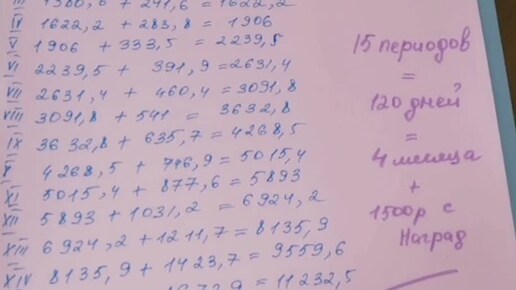 III 1380,6 + 241,6 = 1622,2
IV 1622,2 + 283,8 = 1906
V 1906 + 333,5 = 2239,5
VI 2239,5 + 391,9 = 2631,4
VII 2631,4 + 460,4 = 3091,8
VIII 3091,8 + 541 = 3632,8
IX 3632,8 + 635,7 = 4268,5
X 4268,5 + 746,9 = 5015,4
XI 5015,4 + 877,6 = 5893
XII 5893 + 1031,2 = 6924,2
XIII 6924,2 + 1211,7 = 8135,9
XIV 8135,9 + 1423,7 = 9559,6
= 11232,5
15 периодов
=
120 дней
=
4 месяца
+
1500р с
Наград